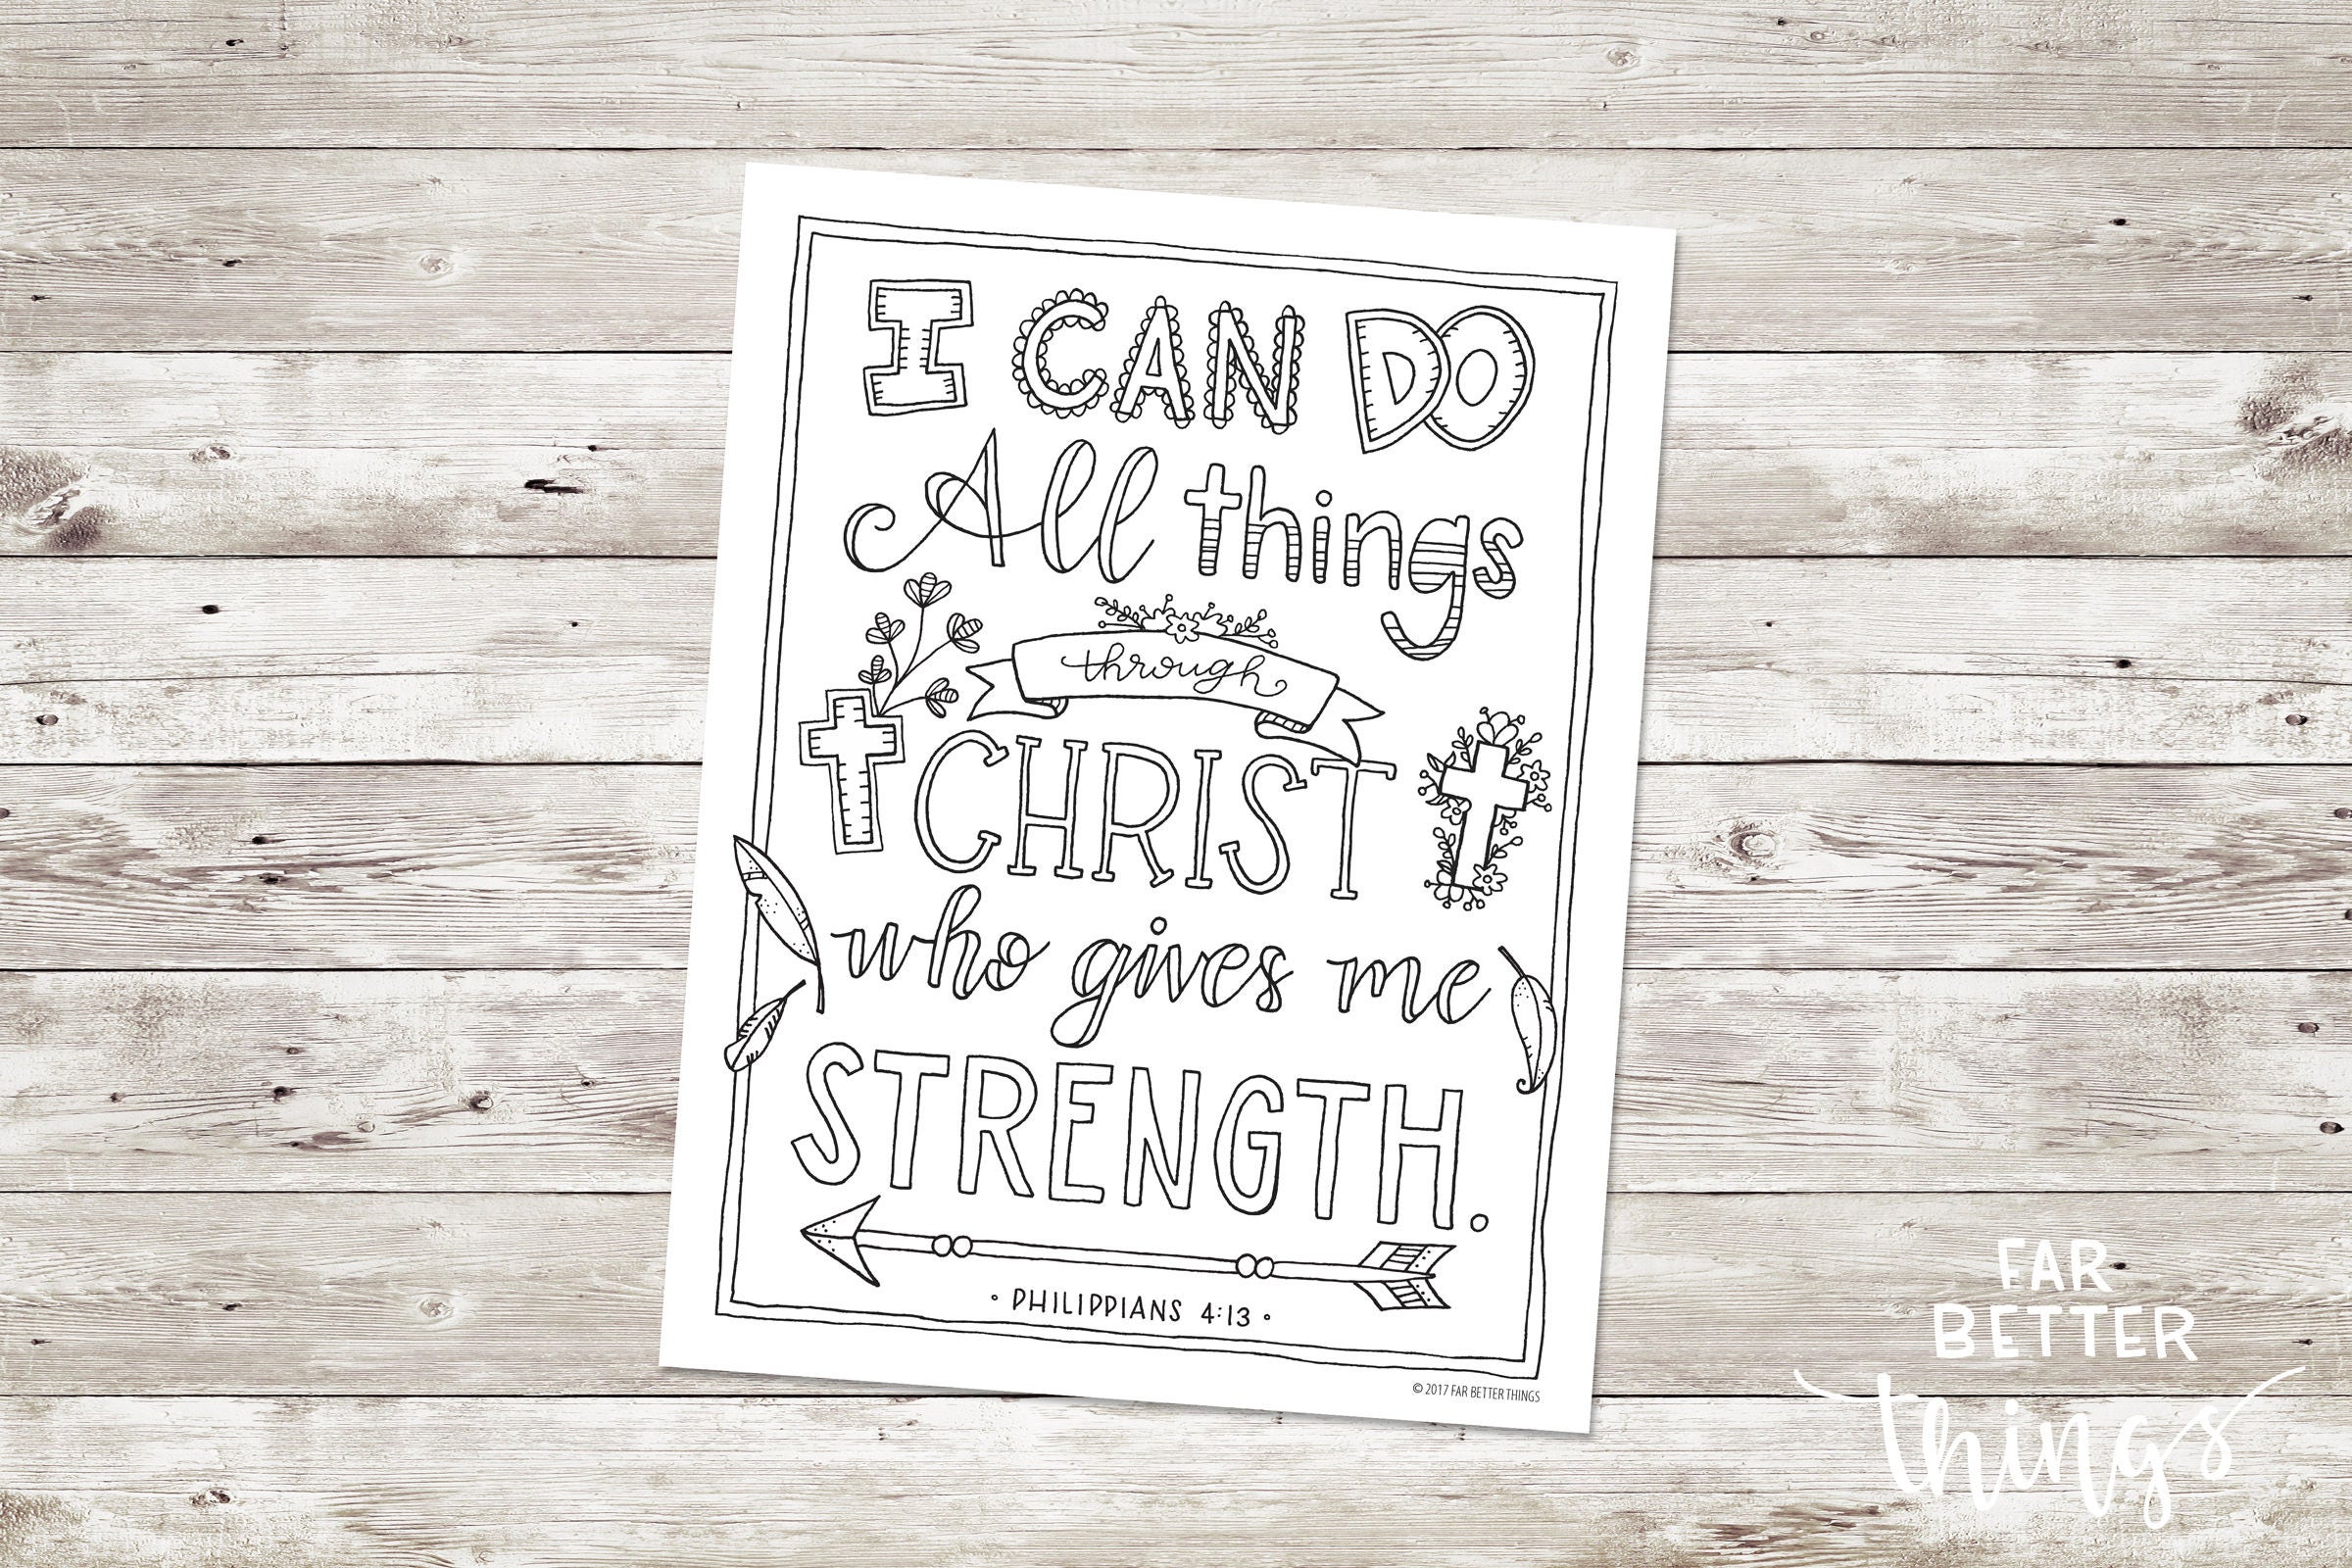 I CAN DO
All things
through
CHRIST
who gives me
STRENGTH.
• PHILIPPIANS 4:13 •
© 2017 FAR BETTER THINGS
FAR
BETTER
things